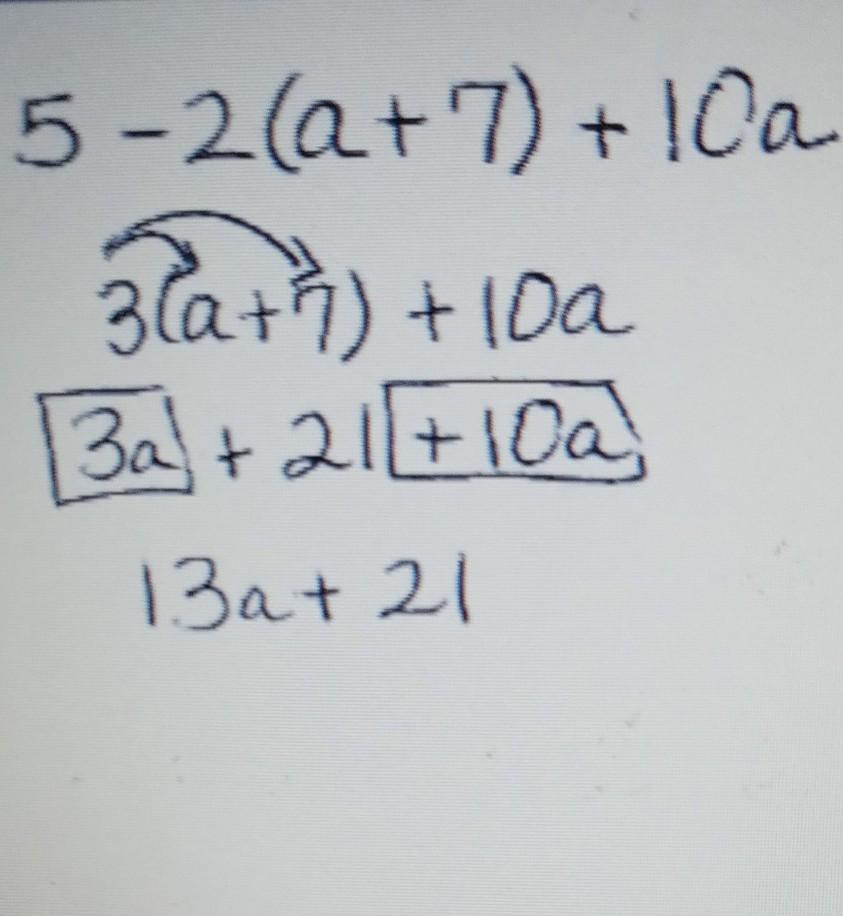 5 - 2(a + 7) + 10a
3(a + 7) + 10a
3a + 21 + 10a
13a + 21